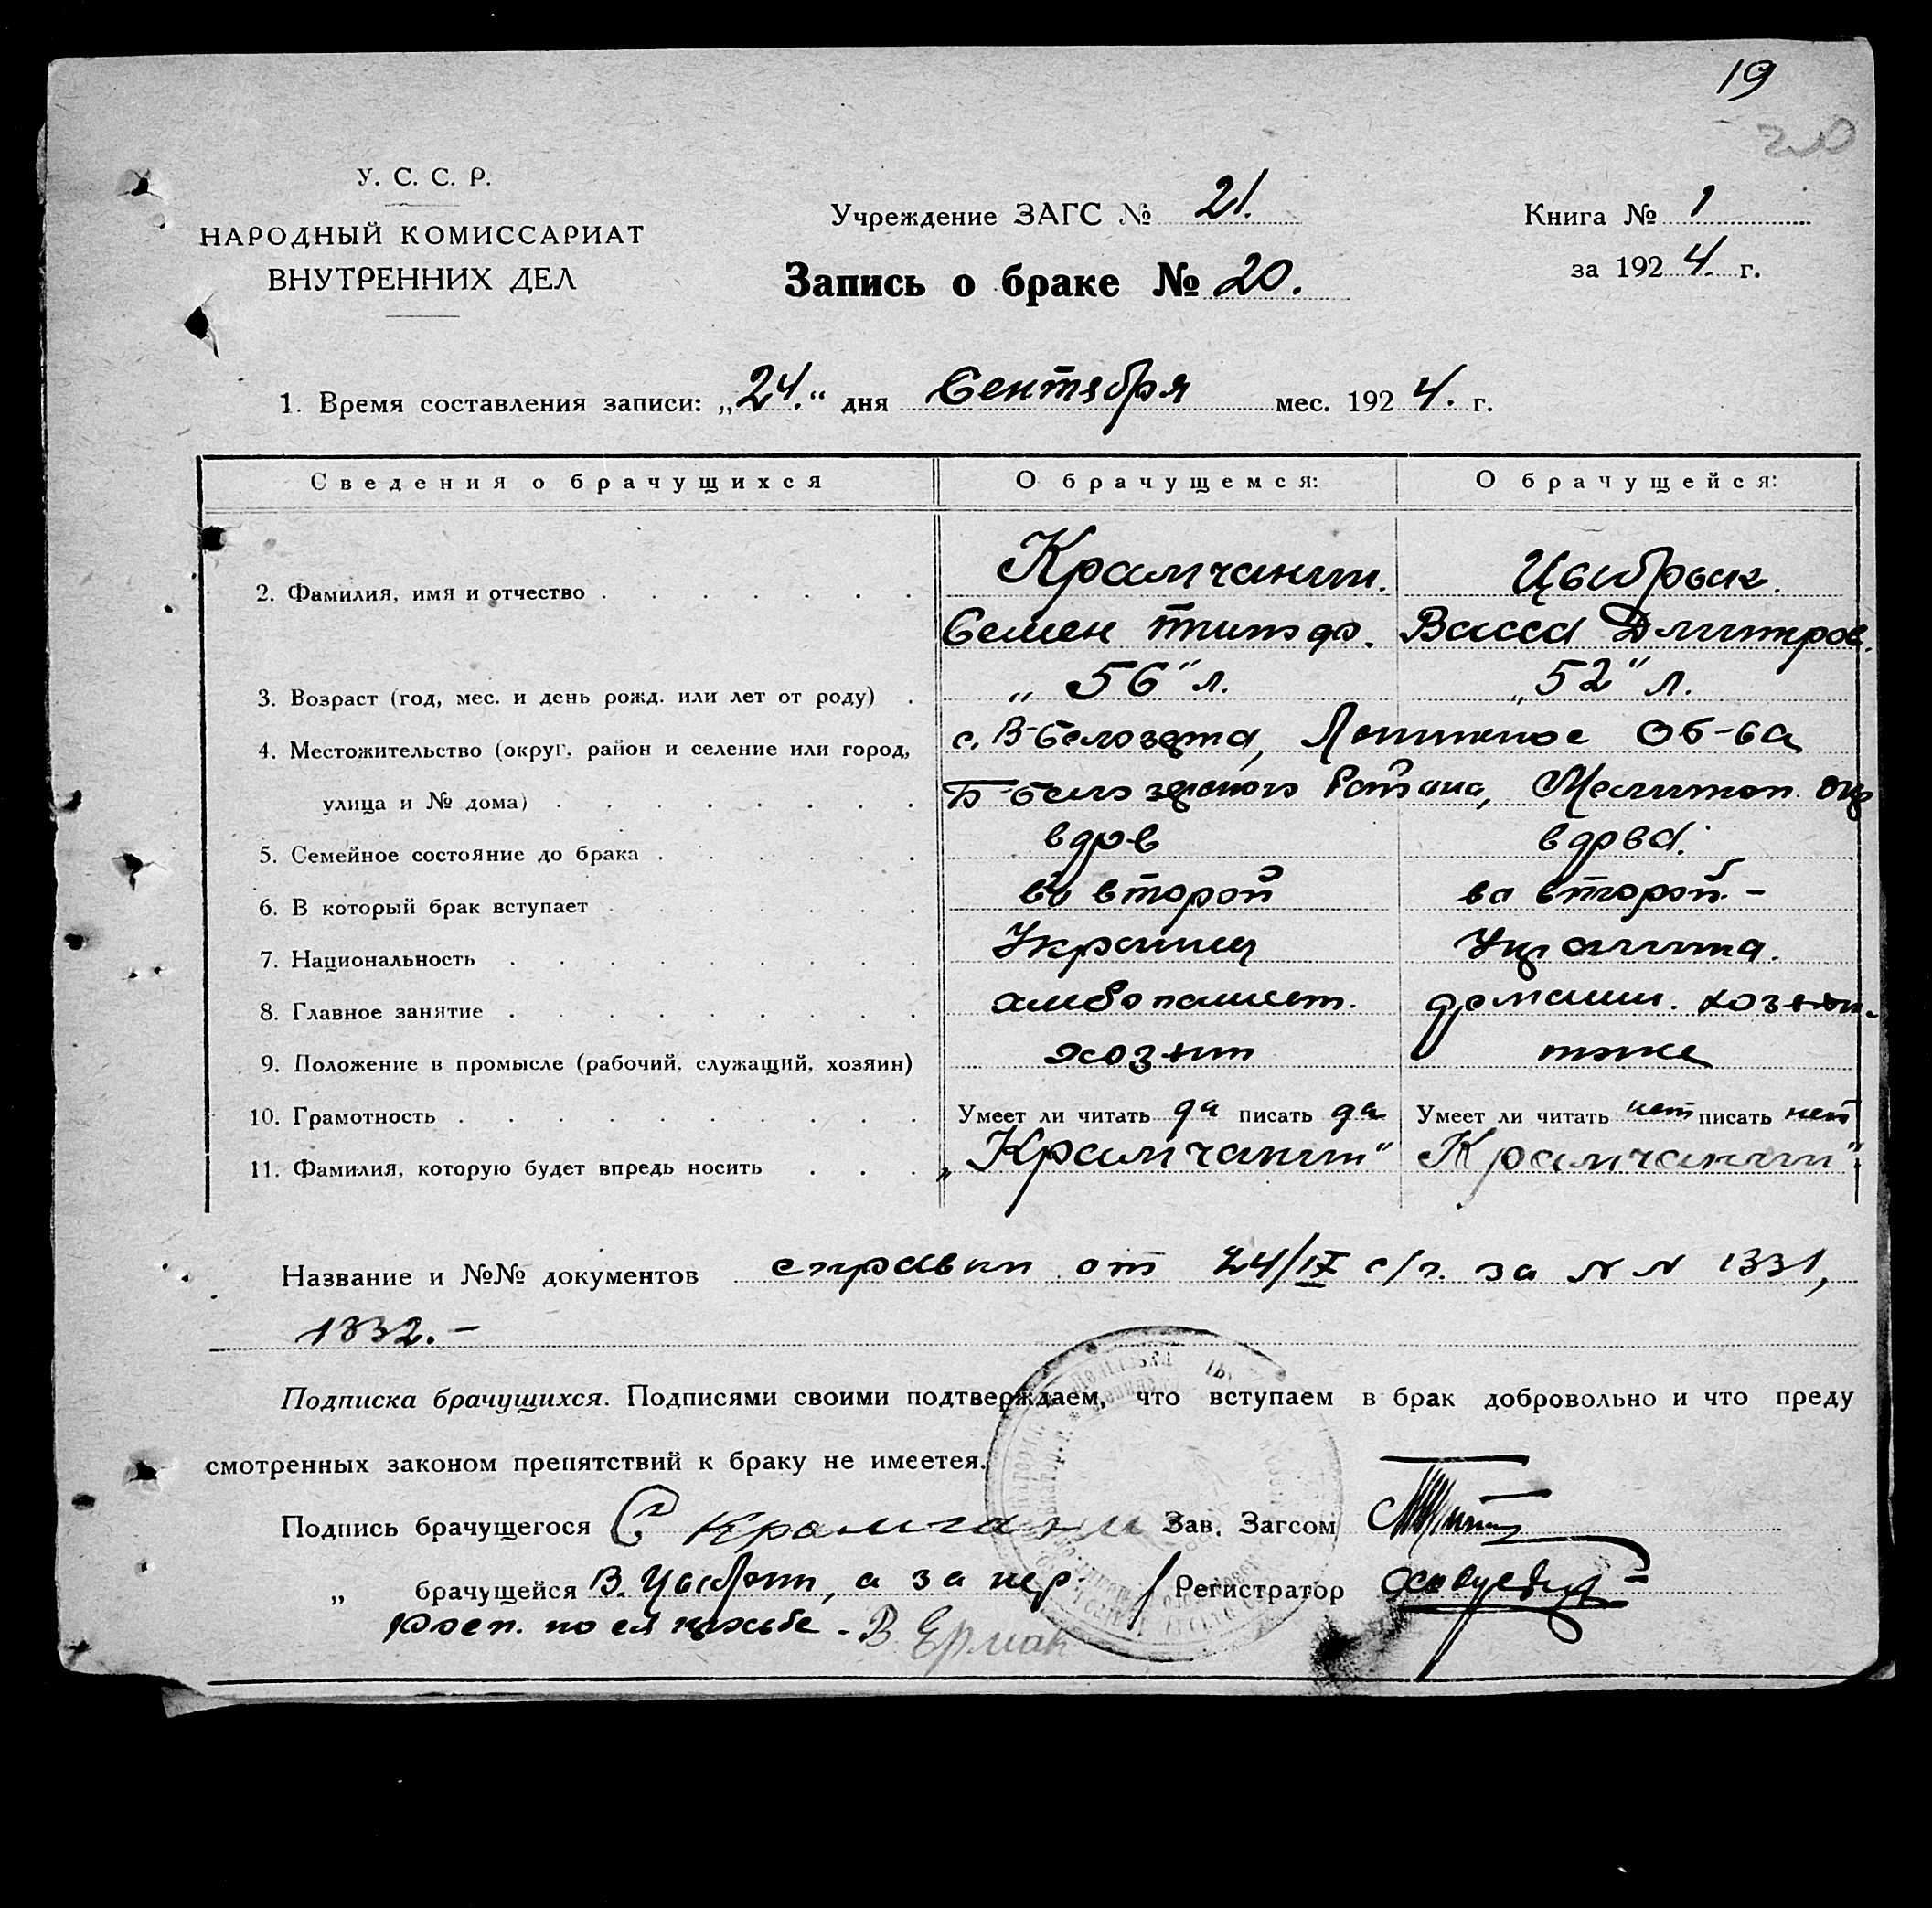 19
20
У. С. С. Р.
НАРОДНЫЙ КОМИССАРИАТ
ВНУТРЕННИХ ДЕЛ
Учреждение ЗАГС № 21.
Книга № 1
за 1924. г.
Запись о браке № 20.
1. Время составления записи: „24.“ дня Сентября мес. 1924. г.
Сведения о брачущихся О брачущемся: О брачущейся:
Крамчанин. Цыбрык.
2. Фамилия, имя и отчество
Семен Васса Дмитров.
3. Возраст (год, мес. и день рожд. или лет от роду) „56" л. „52" л.
4. Местожительство (округ, район и селение или город, с. В-Белозерка, Об-ва
улица и № дома) Б-Белозерского Района, Мелитоп. окр
5. Семейное состояние до брака вдов вдова.
6. В который брак вступает во второй во второй. –
7. Национальность Украинец Украинка.
8. Главное занятие хлебопашест. домашн. хозяйн.
9. Положение в промысле (рабочий, служащий, хозяин) хозяин тоже
10. Грамотность Умеет ли читать да писать да Умеет ли читать нет писать нет
11. Фамилия, которую будет впредь носить „Крамчанин" Крамчанин"
Название и №№ документов справки от 24/IX с/г. за N N 1331,
1332. –
Подписка брачущихся. Подписями своими подтверждаем, что вступаем в брак добровольно и что преду
смотренных законом препятствий к браку не имеетея.
Подпись брачущегося С Крамчани Зав. Загсом
„ брачущейся В. Цыбрик, а за нер. Регистратор
росп. по ея прозьбе - В Ермак